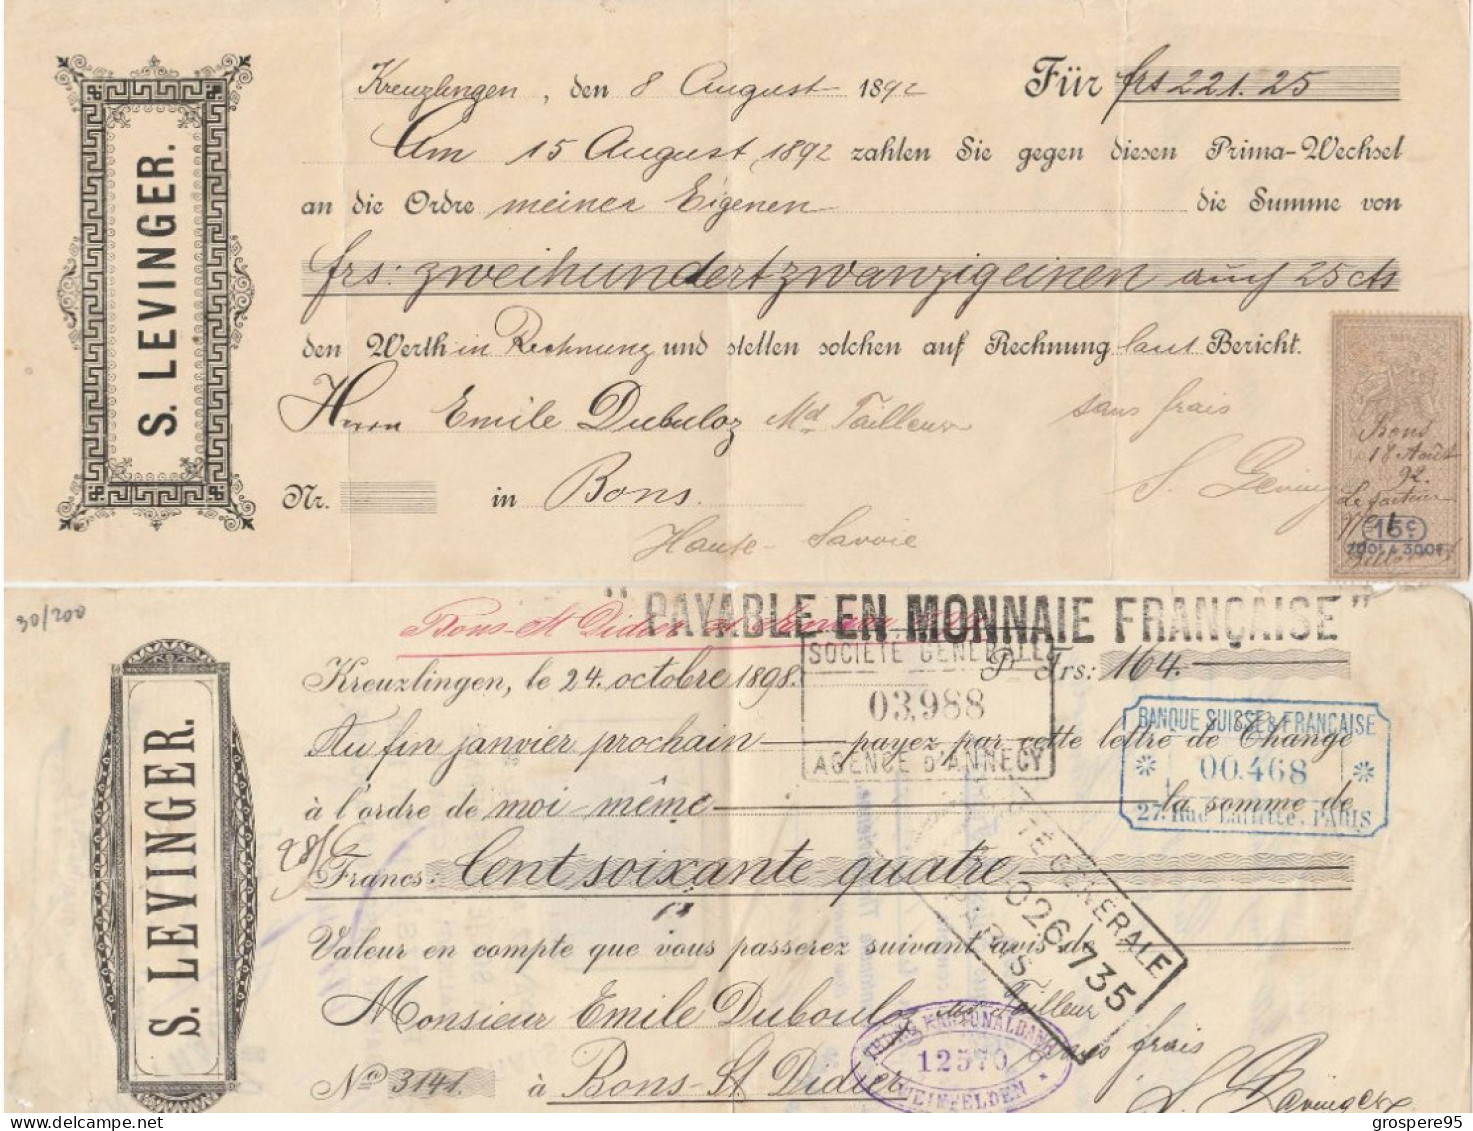 S. LEVINGER.
Kreuzlingen, den 8 August 1892 Für frs 221.25
Am 15 August 1892 zahlen Sie gegen diesen Prima-Wechsel
an die Ordre meiner Eigenen die Summe von
frs: zweihundertzwanzigeinen auch 25 cts
den Werth in Rechnung und stellen solchen auf Rechnung laut Bericht.
Herrn Emile Dubuloz Md Tailleur sans frais
Nr. in Bons.
Haute-Savoie
Bons
18 Août
92.
Le facteur
15c
200F à 300F
30/200
"PAYABLE EN MONNAIE FRANÇAISE"
Bons-St Didier
S. LEVINGER.
Kreuzlingen, le 24. octobre 1898. P. Frs: 164.
SOCIÉTÉ GÉNÉRALE
03,988
AGENCE D'ANNECY
BANQUE SUISSE & FRANÇAISE
00.468
27, Rue Laffitte, PARIS
Au fin janvier prochain payez par cette lettre de Change
à l'ordre de moi-même la somme de
Francs: Cent soixante quatre
Valeur en compte que vous passerez suivant avis de
TÉ GÉNÉRALE
026,735
PARIS
Monsieur Emile Dubouloz Tailleur
sans frais
No 3141. à Bons-St. Didier
THURG. KANTONALBANK
12570
WEINFELDEN
S. Levinger
grospere95